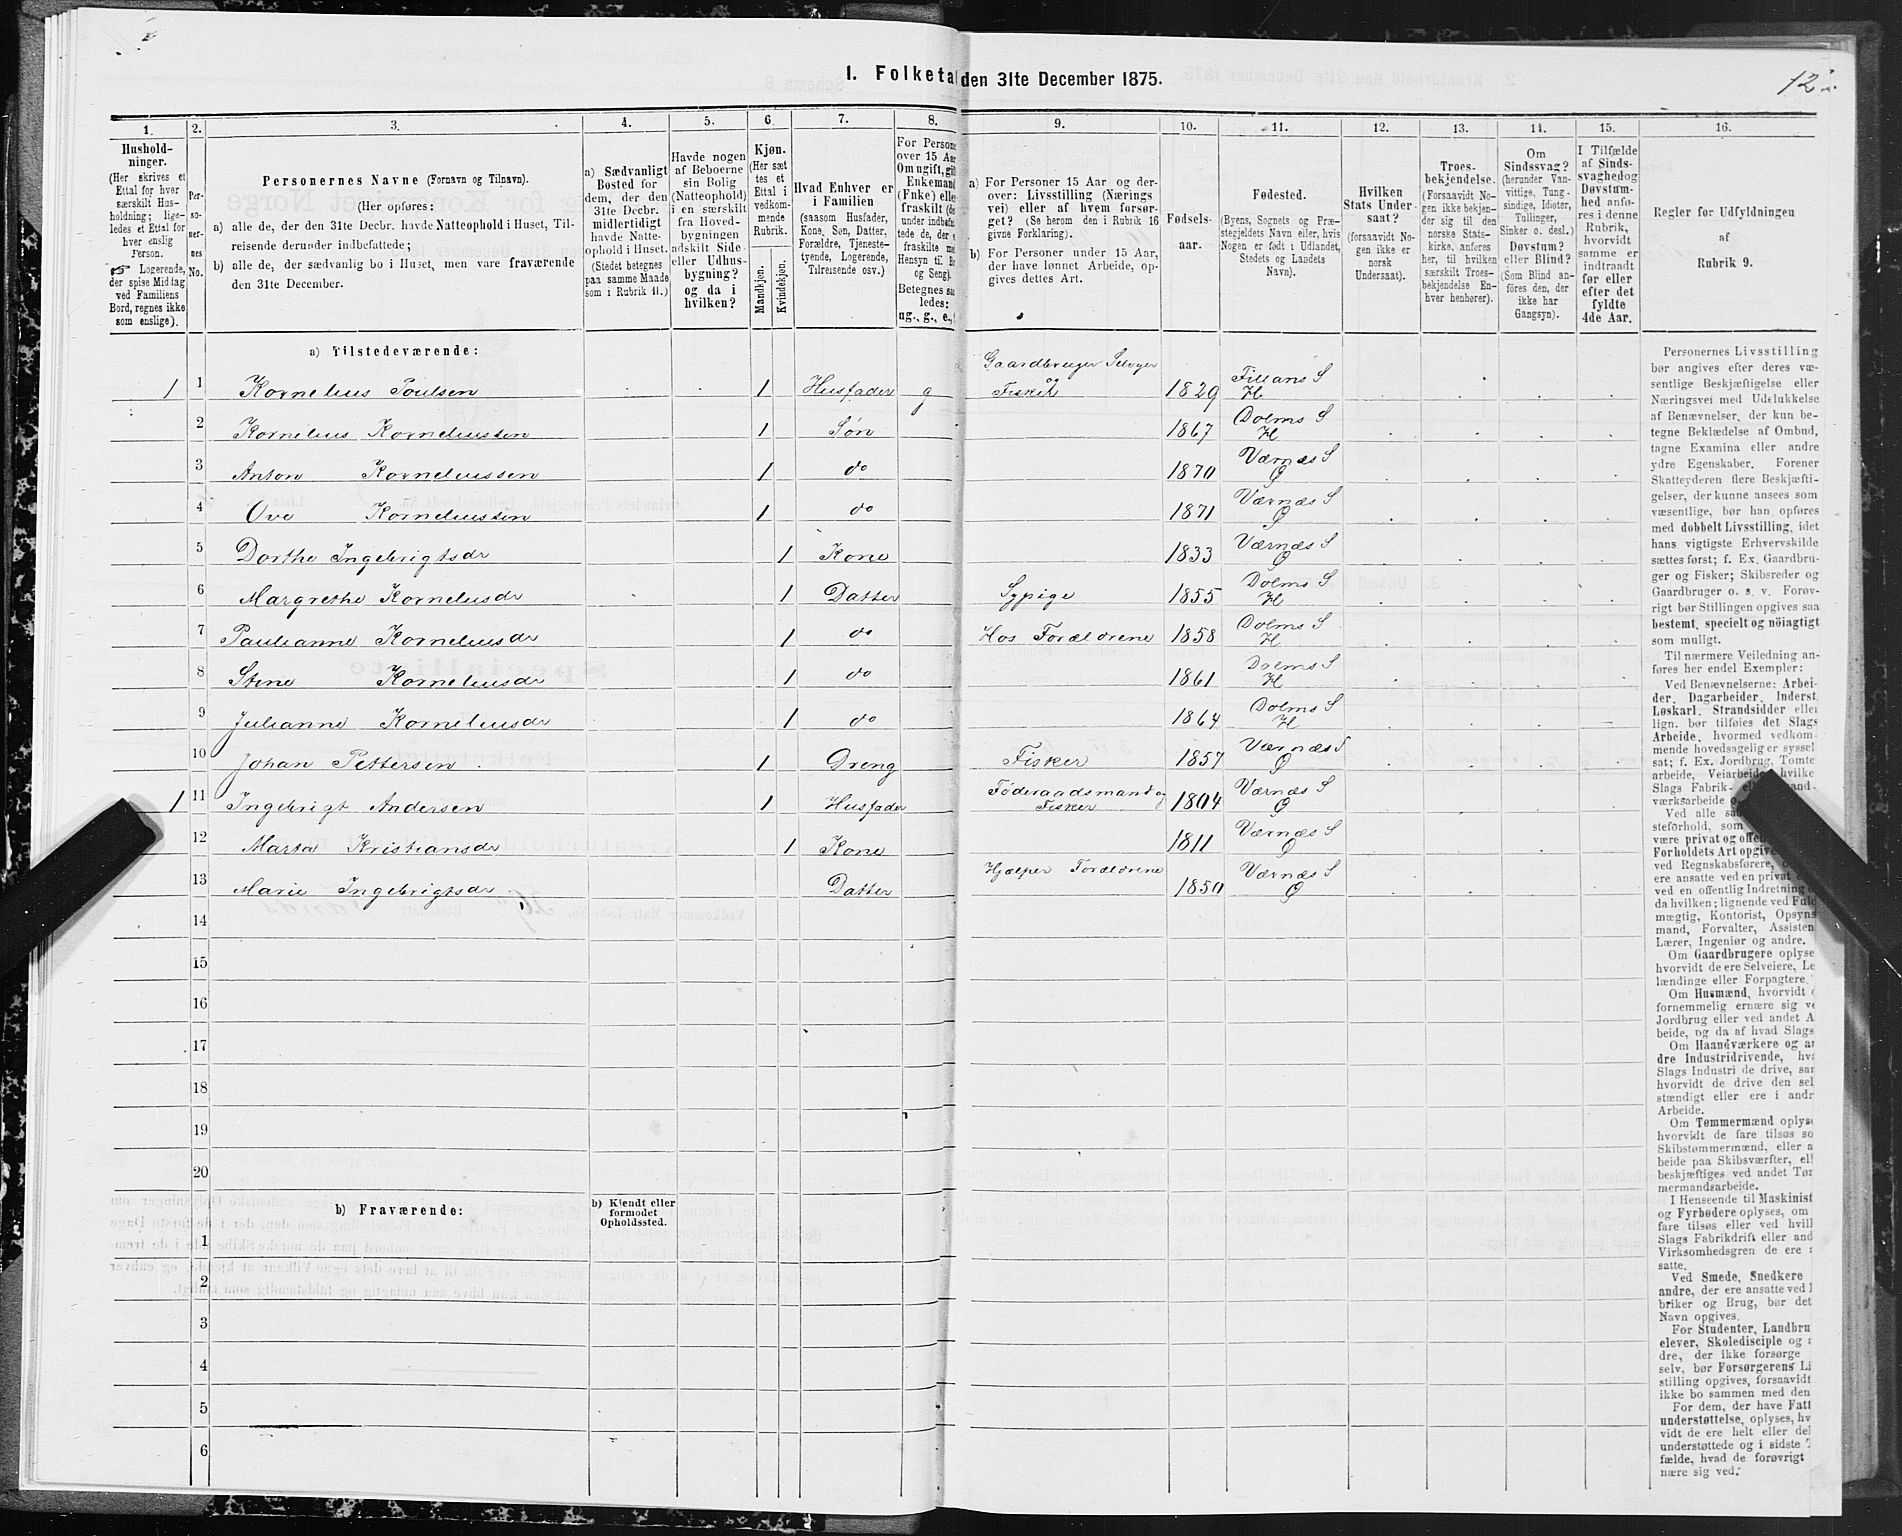 I. Folketal den 31te December 1875.
12
1.
Hushold-
ninger.
(Her skrives et
Ettal for hver
særskilt Hus-
holdning; lige-
ledes et Ettal for
hver enslig
Person.
Logerende,
der spise Middag
ved Familiens
Bord, regnes ikke
som enslige).
2.
Per-
so-
ner-
nes
No.
3.
Personernes Navne (Fornavn og Tilnavn).
(Her opføres:
a) alle de, der den 31te Decbr. havde Natteophold i Huset, Til-
reisende derunder indbefattede;
b) alle de, der sædvanlig bo i Huset, men vare fraværende
den 31te December.
4.
a) Sædvanligt
Bosted for
dem, der den
31te Decbr.
midlertidigt
havde Natte-
ophold i Huset.
(Stedet betegnes
paa samme Maade
som i Rubrik 11.)
5.
Havde nogen
af Beboerne
sin Bolig
(Natteophold)
i en særskilt
fra Hoved-
bygningen
adskilt Side-
eller Udhus-
bygning?
og da i
hvilken?
6.
Kjøn.
(Her sæt-
tes et
Ettal i
vedkom-
mende
Rubrik.
Mandkjøn.
Kvindekjøn.
7.
Hvad Enhver er
i Familien
(saasom Husfader,
Kone, Søn, Datter,
Forældre, Tjeneste-
tyende, Logerende,
Tilreisende osv.)
8.
For Persone
over 15 Aa
Om ugift, gi
Enkemand
(Enke) elle
fraskilt (de
under indbefat
tede de, de
fraskilte me
Hensyn til Bo
og Seng).
Betegnes saa
ledes:
ug., g., e.,
9.
a) For Personer 15 Aar og der-
over: Livsstilling (Nærings-
vei) eller af hvem forsør-
get? (Se herom den i Rubrik 16
givne Forklaring).
b) For Personer under 15 Aar,
der have lønnet Arbeide, op-
gives dettes Art.
10.
Fødsels-
aar.
11.
Fødested.
(Byens, Sognets og Præ-
stegjeldets Navn eller, hvis
Nogen er født i Udlandet,
Stedets og Landets
Navn).
12.
Hvilken
Stats Under-
saat?
(forsaavidt No-
gen ikke er
norsk
Undersaat).
13.
Troes-
bekjendelse.
(Forsaavidt No-
gen ikke bekjen-
der sig til den
norske Stats-
kirke, anføres
her, til hvilken
særskilt Troes-
bekjendelse En-
hver henhører).
14.
Om
Sindssvag?
(herunder Van-
vittige, Tung-
sindige, Idioter,
Tullinger,
Sinker o. desl.)
Døvstum?
eller Blind?
(Som Blind an-
føres den, der
ikke har
Gangsyn).
15.
I Tilfælde
af Sinds-
svaghed og
Døvstum-
hed anfø-
res i denne
Rubrik,
hvorvidt
samme er
indtraadt
før eller
efter det
fyldte
4de Aar.
16.
Regler for Udfyldningen
af
Rubrik 9.
a) Tilstedeværende:
Gaardbruger Selveier
1 1 Kornelius Poulsen 1 Husfader g og Fisker 1829 Fillans S H
2 Kornelius Korneliussen 1 Søn 1867 Dolms S H
3 Anton Korneliussen 1 do 1870 Værnæs S Ø
4 Ove Korneliussen 1 do 1871 Værnæs S Ø
5 Dorthe Ingebrigtsdr 1 Kone 1833 Værnæs S Ø
6 Margrethe Korneliusdr 1 Datter Sypige 1855 Dolms S H
7 Paulianne Korneliusdr 1 do Hos Forældrene 1858 Dolms S H
8 Stine Korneliusdr 1 do 1861 Dolms S H
9 Julianne Korneliusdr 1 do 1864 Dolms S H
10 Johan Pettersen 1 Dreng Fisker 1857 Værnæs S Ø
1 11 Ingebrigt Andersen 1 Husfader Føderaadsmand og Fisker 1804 Værnæs S Ø
12 Marta Kristiansdr 1 Kone 1811 Værnæs S Ø
13 Marie Ingebrigtsdr Datter Hjælper Forældrene 1850 Værnæs S Ø
14
15
16
17
18
19
20
b) Fraværende:
b) Kjendt eller
formodet
Opholdssted.
1
2
3
4
5
6
Personernes Livsstilling
bør angives efter deres væ-
sentlige Beskjæftigelse eller
Næringsvei med Udelukkelse
af Benævnelser, der kun be-
tegne Beklædelse af Ombud,
tagne Examina eller andre
ydre Egenskaber. Forener
Skatteyderen flere Beskjæfti-
gelser, der kunne ansees som
væsentlige, bør han opføres
med dobbelt Livsstilling, idet
hans vigtigste Erhvervskilde
sættes først; f. Ex. Gaardbru-
ger og Fisker; Skibsreder og
Gaardbruger o. s. v. Forøv-
rigt bør Stillingen opgives saa
bestemt, specielt og nøiagtigt
som muligt.
Til nærmere Veiledning an-
føres her endel Exempler:
Ved Benævnelserne: Arbei-
der, Dagarbeider, Inderst,
Løskarl, Strandsidder eller
lign. bør tilføies det Slags
Arbeide, hvormed vedkom-
mende hovedsagelig er syssel-
sat; f. Ex. Jordbrug, Tomte-
arbeide, Veiarbeide, hvilke
Slags Fabrik-
værksarbeide
Ved alle
steforhold, som
være privat og offen
Forholdets Art opgive
ved Regnskabsførere,
ere ansatte ved en privat
ved en offentlig Indretning
da hvilken; lignende ved Fuld
mægtig, Kontorist, Opsyns
mand, Forvalter, Assisten
Lærer, Ingeniør og andre.
Om Gaardbrugere oplyse
hvorvidt de ere Selveiere, Le
lændinge eller Forpagtere.
Om Husmænd, hvorvidt
fornemmelig ernære sig ve
Jordbrug eller ved andet A
beide, og da af hvad Slags
Om Haandværkere og an
dre Industridrivende, hva
Slags Industri de drive, sam
hvorvidt de drive den sel
stændigt eller ere i andr
Arbeide.
Om Tømmermænd oplyse
hvorvidt de fare tilsøs so
Skibstømmermænd, eller a
beide paa Skibsværfter, ell
beskjæftiges ved andet Tøm
mermandsarbeide.
I Henseende til Maskinist
og Fyrbødere oplyses, om
fare tilsøs eller ved hvill
Slags Fabrikdrift eller and
Virksomhedsgren de ere
satte.
Ved Smede, Snedkere
andre, der ere ansatte ved
briker og Brug, bør det
Navn opgives.
For Studenter, Landbru
elever, Skoledisciple og
dre, der ikke forsørge
selv, bør Forsørgerens Li
stilling opgives, forsaavidt
ikke bo sammen med den
For dem, der have Fatt
understøttelse, oplyses, hv
vidt de ere helt eller del
understøttede og i sidste
fælde, hvad de forøvrigt
nære sig ved.